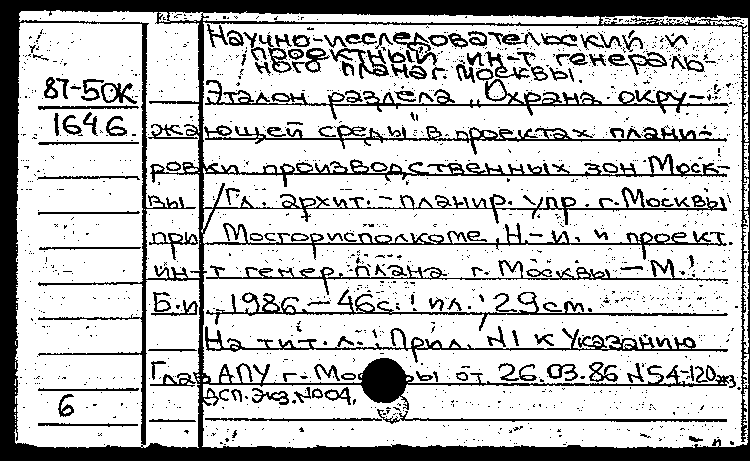 Научно-исследовательский и
проектный ин-т генераль-
ного плана г. Москвы.
87-50К Эталон раздела „Охрана окру-
1646. жающей среды" в проектах плани-
ровки производственных зон Моск-
вы / Гл. архит.-планир. упр. г. Москвы
при Мосгорисполкоме, Н.-и. и проект.
ин-т генер. плана г. Москвы — М.:
Б.и., 1986. — 46с.: ил.; 29см.
На тит. л.: Прил. №1 к Указанию
Глав АПУ г. Москвы от 26.03.86 №54-120 экз.
ДСП. Экз. №004.
6